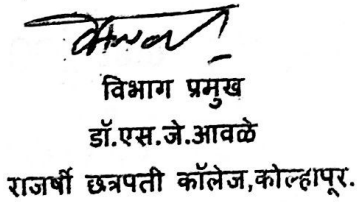 विभाग प्रमुख
डॉ.एस.जे.आवळे
राजर्षी छत्रपती कॉलेज,कोल्हापूर.